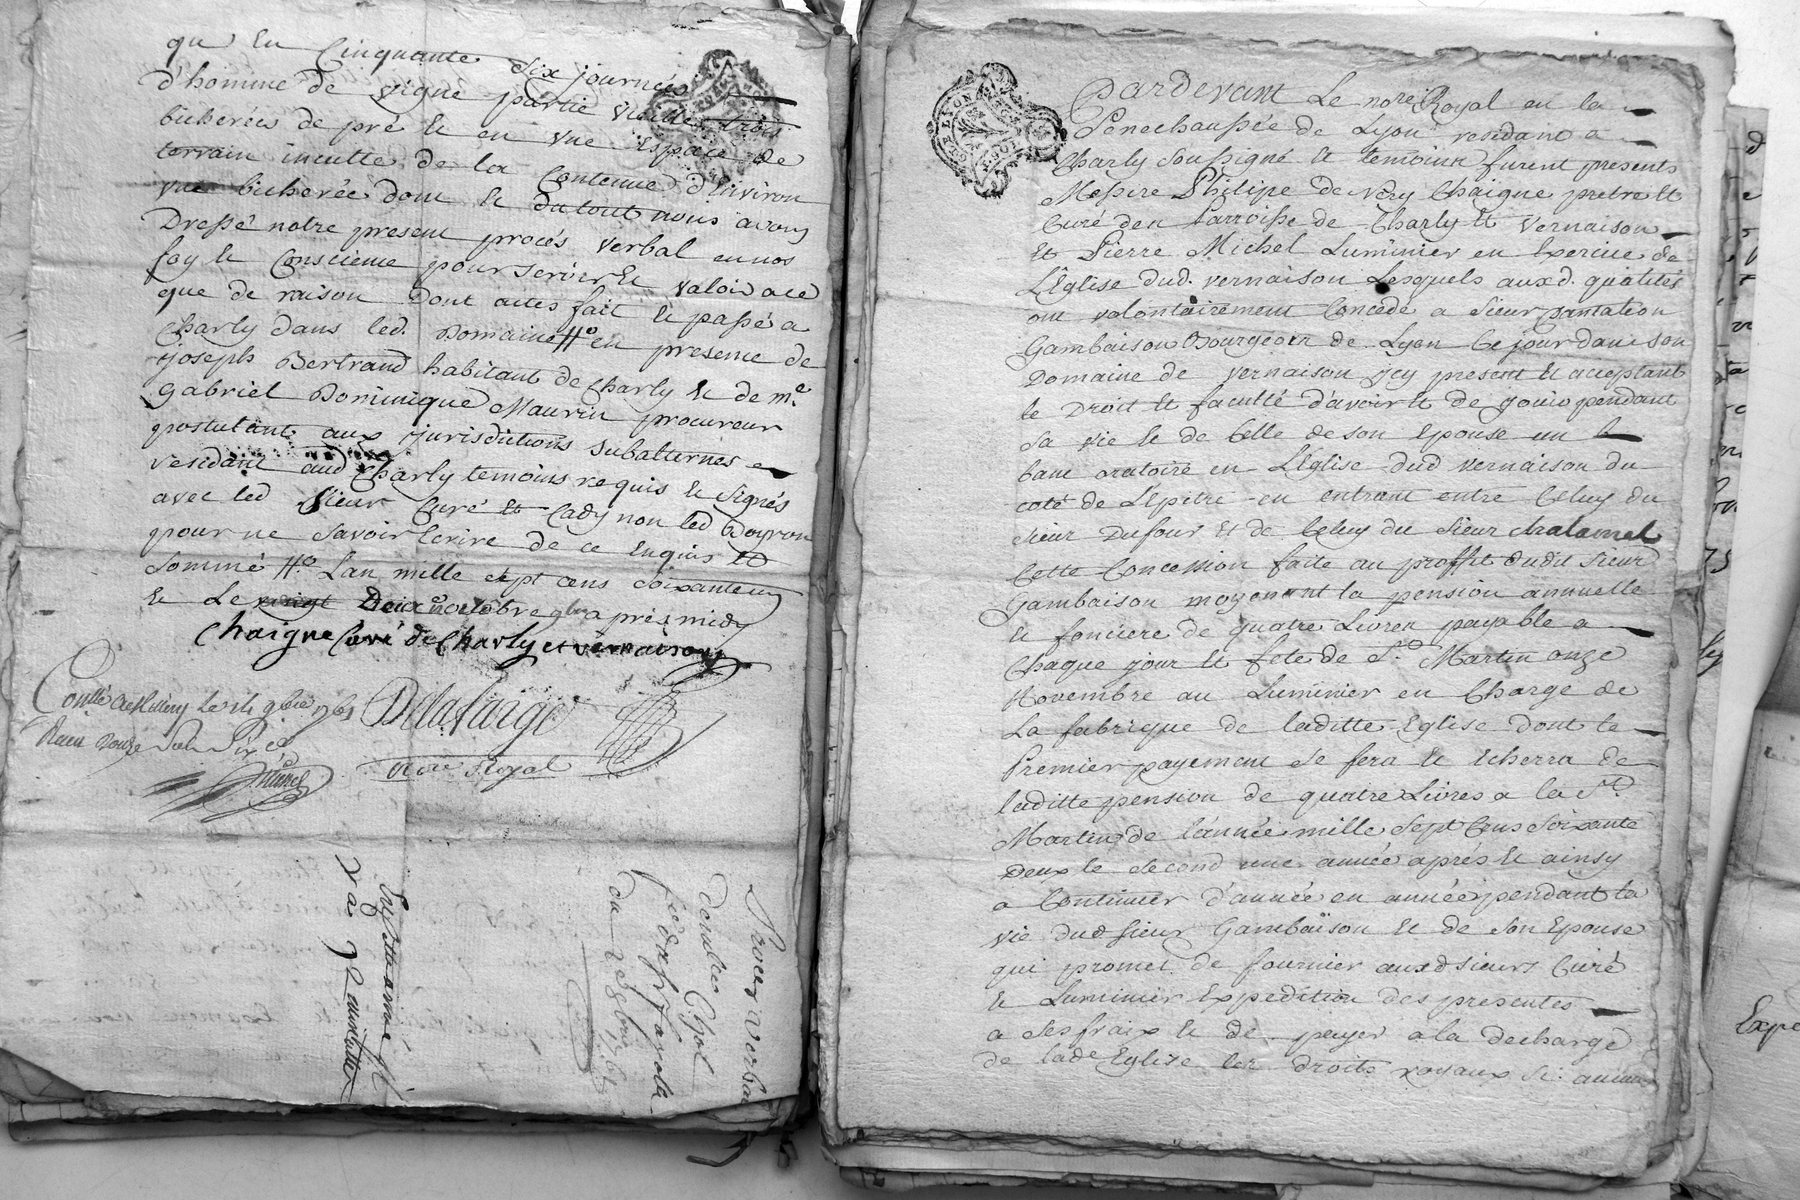 qu en Cinquante six journées
d'homme de vigne partie vieilles trois
bicherées de pré et en une Espace de
terrain inculte de la Contenue d'Environ
une bicherée dont et du tout nous avons
Dressé notre present procés verbal en nos
foy et Conscience pour servir et valoir ace
que de raison dont actes fait et passé a
Charly dans led. Domaine en presence de
joseph Bertrand habitant de Charly et de me
Gabriel Dominique Maurin procureur
postulant aux jurisdictions subalternes
residant aud Charly temoins requis et signés
avec led sieur Curé et Cady non led Doyron
pour ne savoir Ecrire de ce Enquis et
sommé Lan mille sept cens soixante un
et Le vingt Deux octobre aprés midy
Chaigne Curé de Charly et vernaison
Conllé a Millery le 14 9bre 1761
Delafarge
Recu Douze sols
nore Royal
Procés verbal
du 2e 9bre 1761
Pardevant Le nore Royal en la
Senechaussée de Lyon residant a
Charly soussigné et temoins furent presents
Messire Philipe de Nery Chaigne pretre et
Curé den Parroisse de Charly et Vernaison
Et Pierre Michel Luminier en Exercice de
L'Eglise dud. vernaison Lesquels auxd. qualités
ont volontairement Concedé a sieur pantaleon
Gambaison Bourgeois de Lyon Ce jour dans son
Domaine de vernaison jcy present et acceptant
le Droit et faculté d'avoir et de jouir pendant
sa vie et de Celle de son Epouse un
banc oratoire en L'Eglise dud vernaison du
coté de L'Epitre en entrant entre Celuy du
sieur Dufour et de Celuy du sieur Chalamel
Cette Concession faite au proffit dudit sieur
Gambaison moyenant la pension annuelle
et fonciere de quatre Livres payable a
Chaque jour et fete de St. Martin onze
Novembre au Luminier en Charge de
La fabrique de laditte Eglise dont le
Premier payement se fera et Echerra de
laditte pension de quatre Livres a la St.
Martin de l'année mille sept Cens soixante
Deux le second une année aprés et ainsy
a Continuer d'année en année pendant la
vie dud sieur Gambaison et de son Epouse
qui promet de fournier auxd sieurs Curé
et Luminier Expedition des presentes
a ses fraix et de payer a la decharge
de lade Eglise les droits royaux si aucun